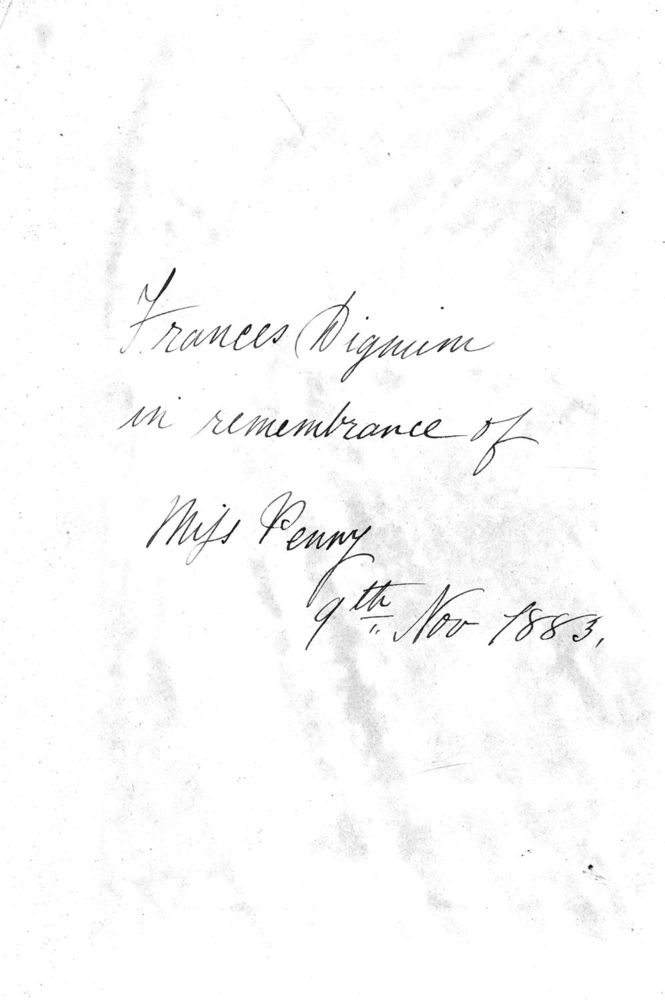 Frances Dignum
in remembrance of
Miss Penny
9th Nov 1883.